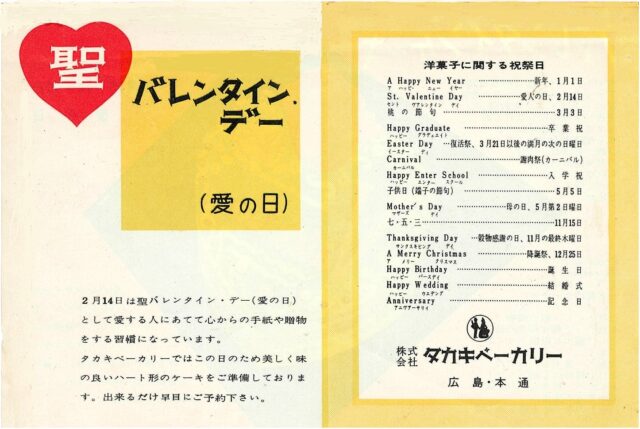 聖
バレンタイン・
デー
(愛の日)
2月14日は聖バレンタイン・デー(愛の日)
として愛する人にあてて心からの手紙や贈物
をする習慣になっています。
タカキベーカリーではこの日のため美しく味
の良いハート形のケーキをご準備しておりま
す。出来るだけ早目にご予約下さい。
洋菓子に関する祝祭日
A Happy New Year ……………新年、1月1日
ア ハッピー ニュー イヤー
St. Valentine Day ……………愛人の日、2月14日
セント ヴアレンタイン デイ
桃の節句……………3月3日
Happy Graduate ……………卒業祝
ハッピー グラデュエイト
Easter Day …復活祭、3月21日以後の満月の次の日曜日
イースター デイ
Carnival ……………謝肉祭(カーニバル)
カーニバル
Happy Enter School ……………入学祝
ハッピー エンター スクール
子供日(端子の節句)……………5月5日
Mother's Day ……………母の日、5月第2日曜日
マザーズ デイ
七・五・三……………11月15日
Thanksgiving Day …穀物感謝の日、11月の最終木曜日
サンクスギビング デイ
A Merry Christmas ……………降誕祭、12月25日
ア メリー クリスマス
Happy Birthday ……………誕生日
ハッピー バースデイ
Happy Wedding ……………結婚式
ハッピー ウエデング
Anniversary ……………記念日
アニヴアーサリイ
株式会社 タカキベーカリー
広島・本通